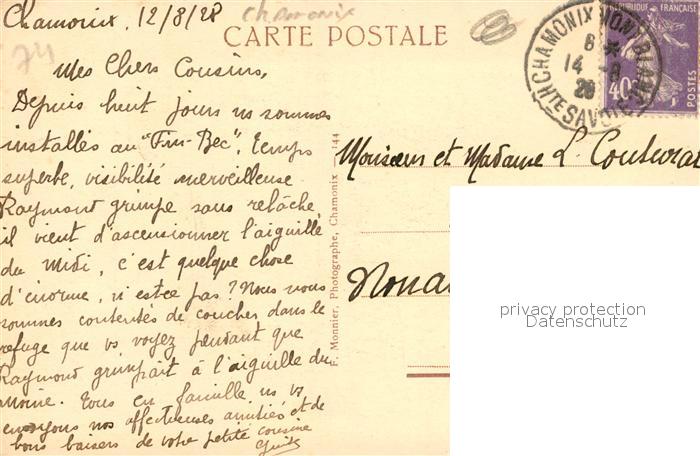 Chamonix, 12/8/28
Chamonix
74
CARTE POSTALE
CHAMONIX MONT BLANC
6 *
14 - 8
28
HTE SAVOIE
40c
POSTES
Mes Chers Cousins,
Depuis huit jours ns sommes
installés au "Fin-Bec". Temps
superbe, visibilité merveilleuse
Raymont grimpe sans relâche
il vient d'ascensionner l'aiguille
du Midi, c'est quelque chose
d'énorme, n'estce pas? Nous nous
sommes contentés de coucher dans le
refuge que vs voyez pendant que
Raymond grimpait à l'aiguille du
moine. Tous en famille ns vs
envoyons nos affectueuses amitiés et de
bons baisers de votre petite cousine
F. Monnier, Photographe, Chamonix - 144
Monsieur et Madame L. Couturat
Noua
privacy protection
Datenschutz